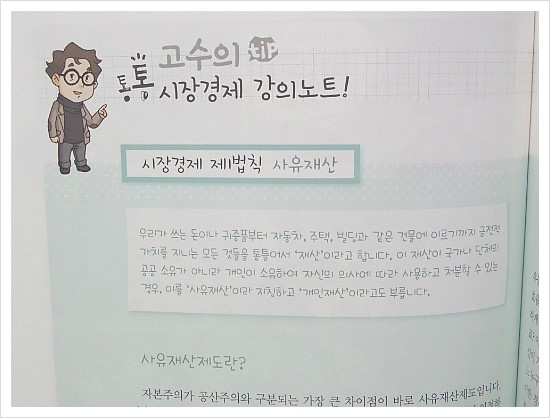 고수의 tip
통통 시장경제 강의노트!
시장경제 제1법칙 사유재산
우리가 쓰는 돈이나 귀중품부터 자동차, 주택, 빌딩과 같은 건물에 이르기까지 금전적
가치를 지니는 모든 것들을 통틀어서 '재산'이라고 합니다. 이 재산이 국가나 단체의
공공 소유가 아니라 개인이 소유하여 자신의 의사에 따라 사용하고 처분할 수 있는
경우, 이를 '사유재산'이라 지칭하고 '개인재산'이라고도 부릅니다.
사유재산제도란?
자본주의가 공산주의와 구분되는 가장 큰 차이점이 바로 사유재산제도입니다.